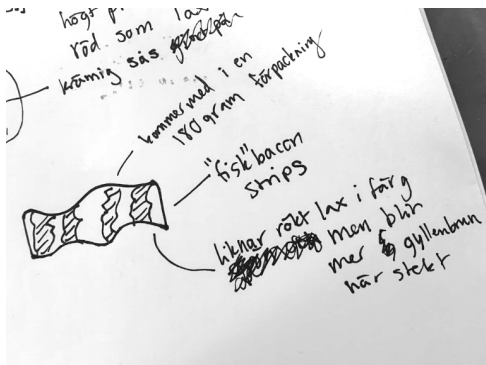 högt
röd som lax
krämig sås
kommer med i en
180 gram förpackning
"fisk" bacon
strips
liknar rökt lax i färg
men blir
mer gyllenbrun
när stekt